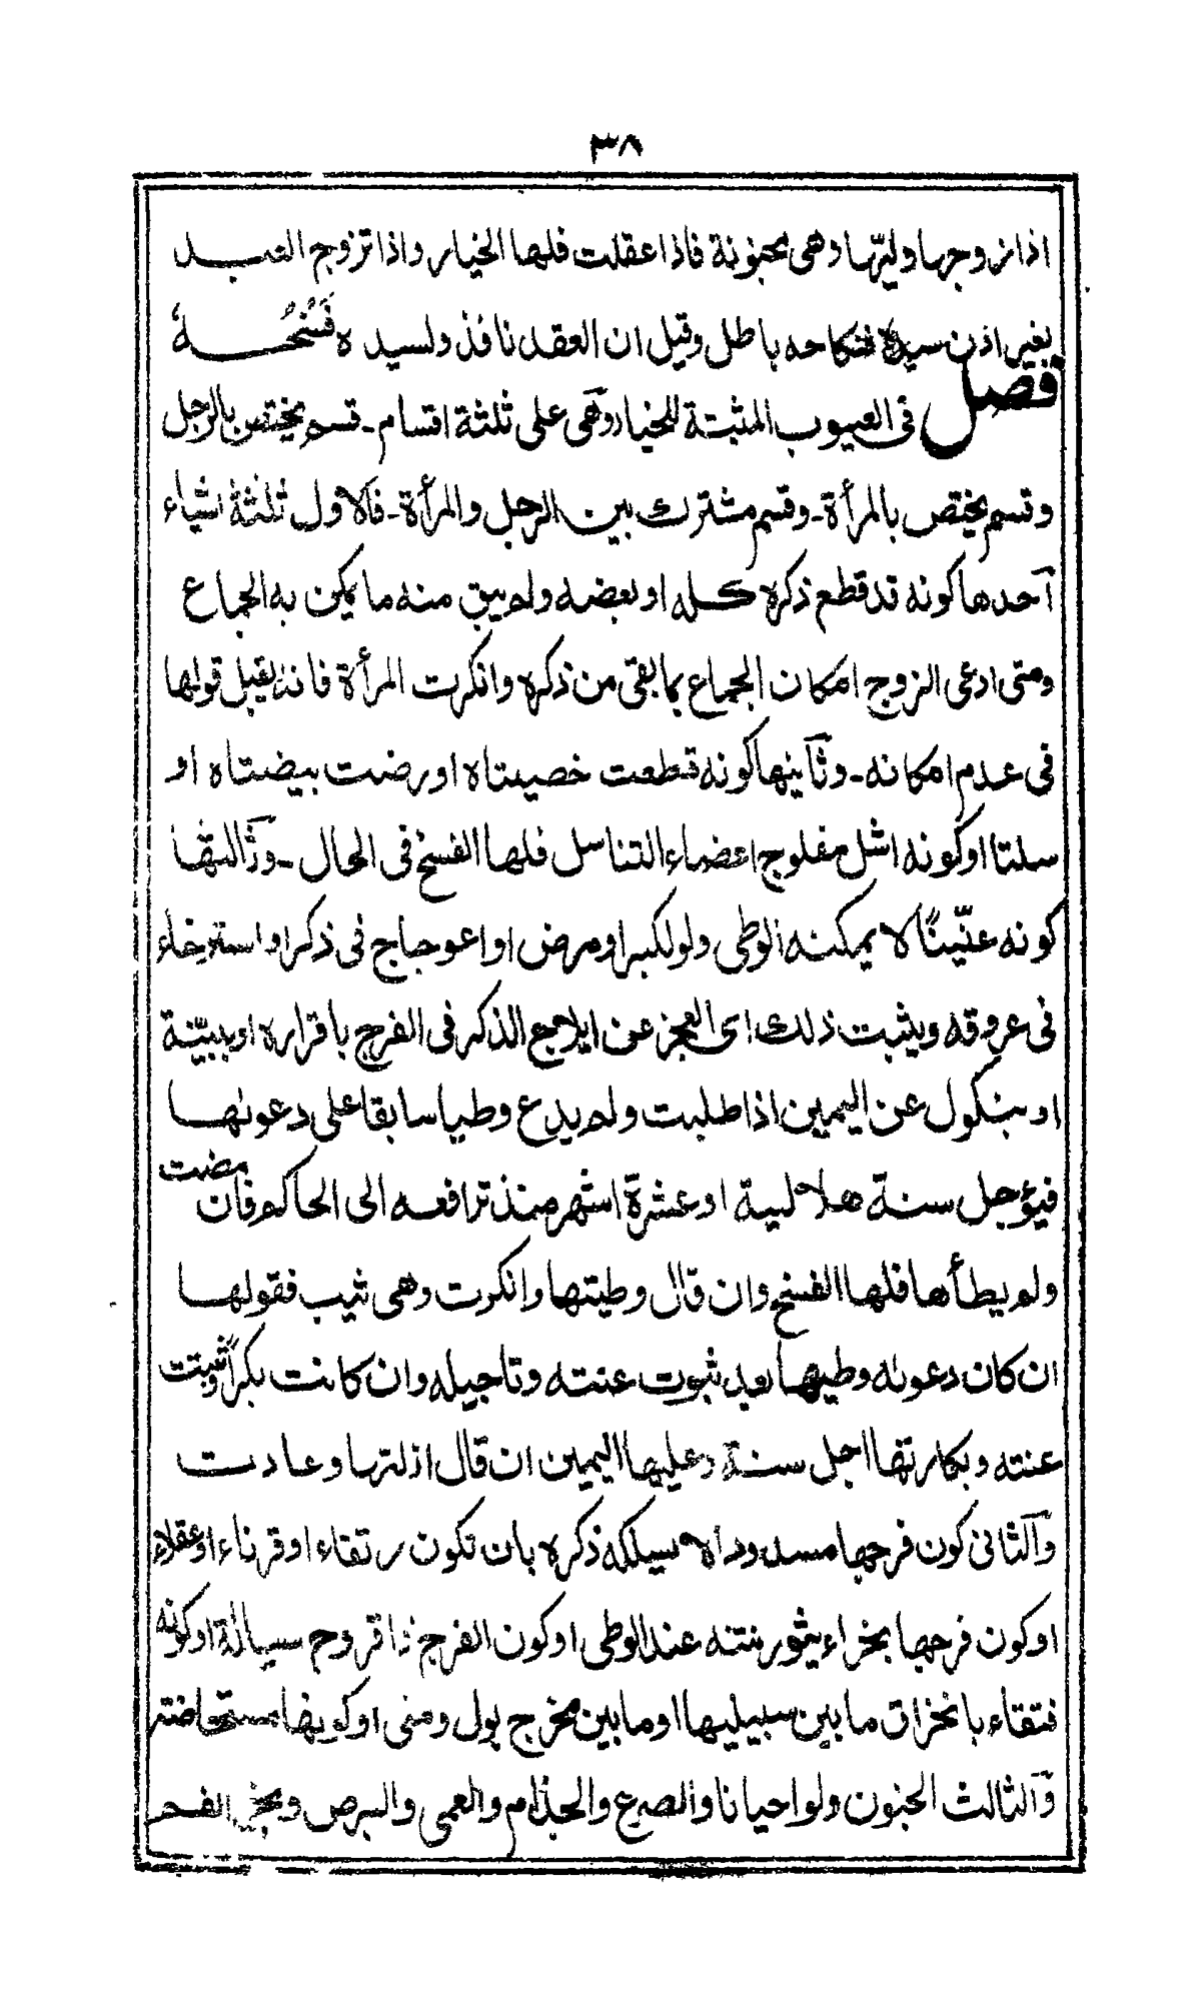 ٣٨
اذا زوجها وليّها وهى مجنونة فاذا عقلت فلها الخيار واذا تزوج العبد
بغير اذن سيده فنكاحه باطل وقيل ان العقد نافذ ولسيده فَسْخُهُ
فصل فى العيوب المثبتة للخيار وهى على ثلثة اقسام ـ قسم يختص بالرجل
وقسم يختص بالمرأة ـ وقسم مشترك بين الرجل والمرأة ـ فالاول ثلثة اشياء
آحدها كونه قد قطع ذكره كله او بعضه ولم يبق منه ما يمكن به الجماع
ومتى ادعى الزوج امكان الجماع بما بقى من ذكره وانكرت المرأة فانه يقبل قولها
فى عدم امكانه ـ وثآنيها كونه قطعت خصيتاه او رضت بيضتاه او
سلتا او كونه اشل مفلوج اعضاء التناسل فلها الفسخ فى الحال ـ وثآلثها
كونه عنّينًا لا يمكنه الوطى ولو لكبر او مرض او اعوجاج فى ذكر او استرخاء
فى عروقه ويثبت ذلك اى العجز عن ايلاج الذكر فى الفرج باقراره او ببيّنة
او بنكول عن اليمين اذا طلبت ولم يدع وطيا سابقا على دعوٰىها
فيؤجل سنة هلالية او عشرة اشهر منذ ترافعه الى الحاكم فان مضت
ولم يطأها فلها الفسخ وان قال وطيتها وانكرت وهى ثيب فقولها
ان كان دعوٰىه وطيها بعد ثبوت عنته وتاجيله وان كانت بكرًا وثبتت
عنته وبكارتها اجل سنة وعليها اليمين ان قال ازلتها وعادت
وآلثانى كون فرجها مسدودا لا يسلكه ذكره بان تكون رتقاء او قرناء او عفلاء
او كون فرجها بخراء يثور نتنه عند الوطى او كون الفرج ذا قروح سيالة او كونه
فتقاء بانخراق ما بين سبيليها او ما بين مخرج بول ومنى او كونها مستحاضة
وآلثالث الجنون ولو احيانا والصرع والجذام والعمى والبرص وبخر الفم